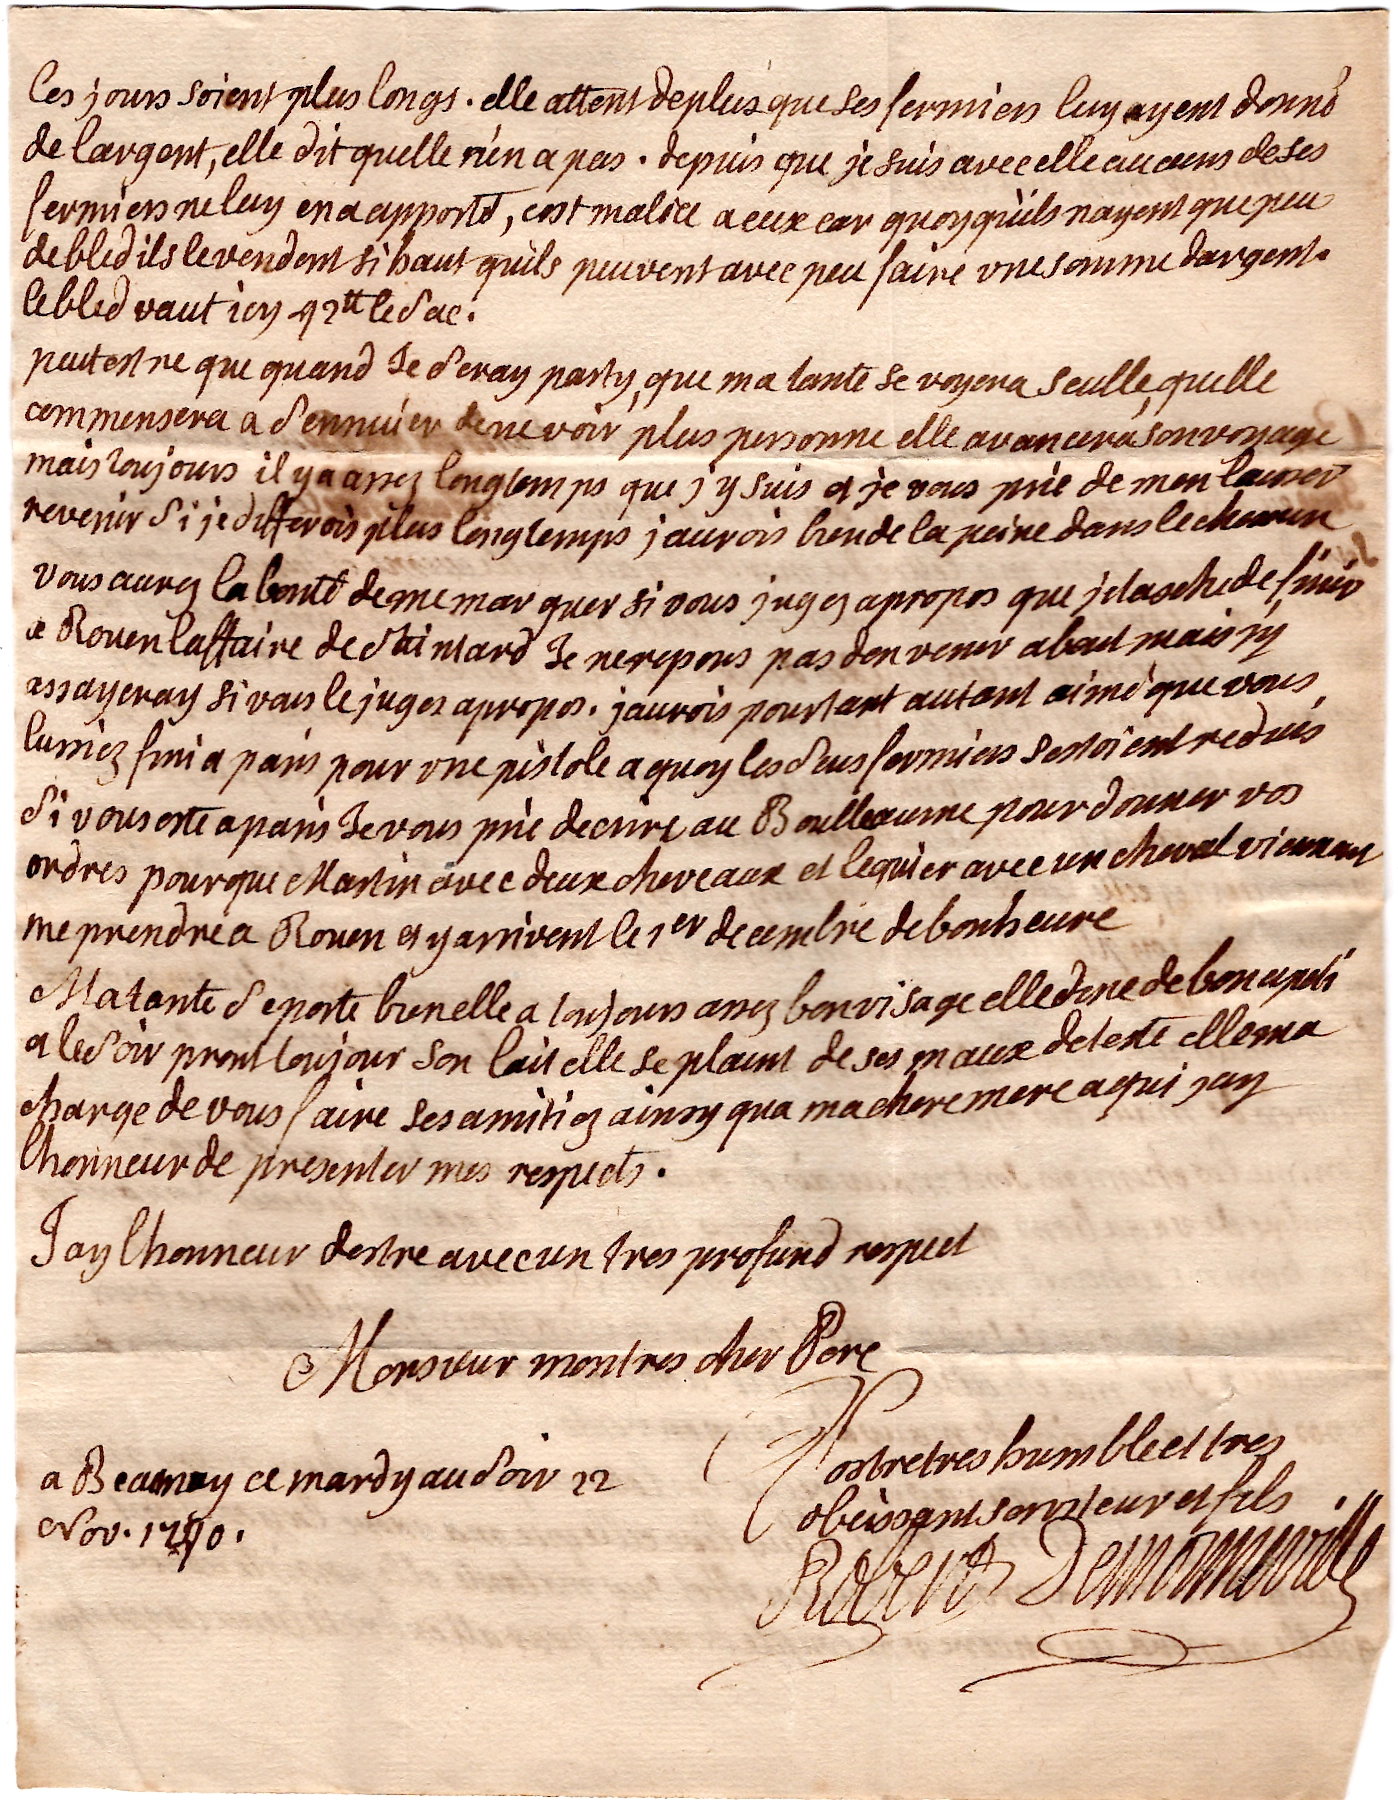 les jours soient plus longs. elle attent de plus que ses fermiers luy ayent donné
de largent, elle dit quelle n'en a pas. depuis que je suis avec elle aucuns de ses
fermiers ne luy en a apporté, cest malice a eux car quoy quils nayent que peu
de bled ils le vendent si haut quils peuvent avec peu faire une somme dargent.
le bled vaut icy 42tt le sac.
peutestre que quand Je seray party, que ma tante se voyera seulle, quelle
commensera a sennuier de ne voir plus personne elle avancera son voyage
mais toujours il y a assez longtemps que j'y suis et je vous prie de men laisser
revenir si je differois plus longtemps jaurois bien de la peine dans le chemin
vous aurez la bonté de me marquer si vous jugez apropos que je tasche de finir
a Rouen laffaire de Je ne repons pas den venir a bout mais jy
assayeray si vous le jugez apropos. jaurois pourtant autant aimé que vous
lussiez fini a paris pour une pistole a quoy les deus fermiers sestoient reduis
si vous este a paris Je vous prie decrire au Boulleaume pour donner vos
ordres pour que Martin avec deux cheveaux et lequier avec un cheval viennent
me prendre a Rouen et y arrivent le 1er decembre de bonheure
Ma tante se porte bien elle a toujours assez bon visage elle dine de bon apeti
et le soir prent toujour son lait elle se plaint de ses maux de teste elle ma
charge de vous faire ses amitiez ainsy qua ma chere mere a qui jay
lhonneur de presenter mes respects.
Jay lhonneur destre avec un tres profond respect
Monsieur mon tres cher Pere
Vostre tres humble et tres
obeissant serviteur et fils
a Beaunay ce mardy au soir 22
Nov.